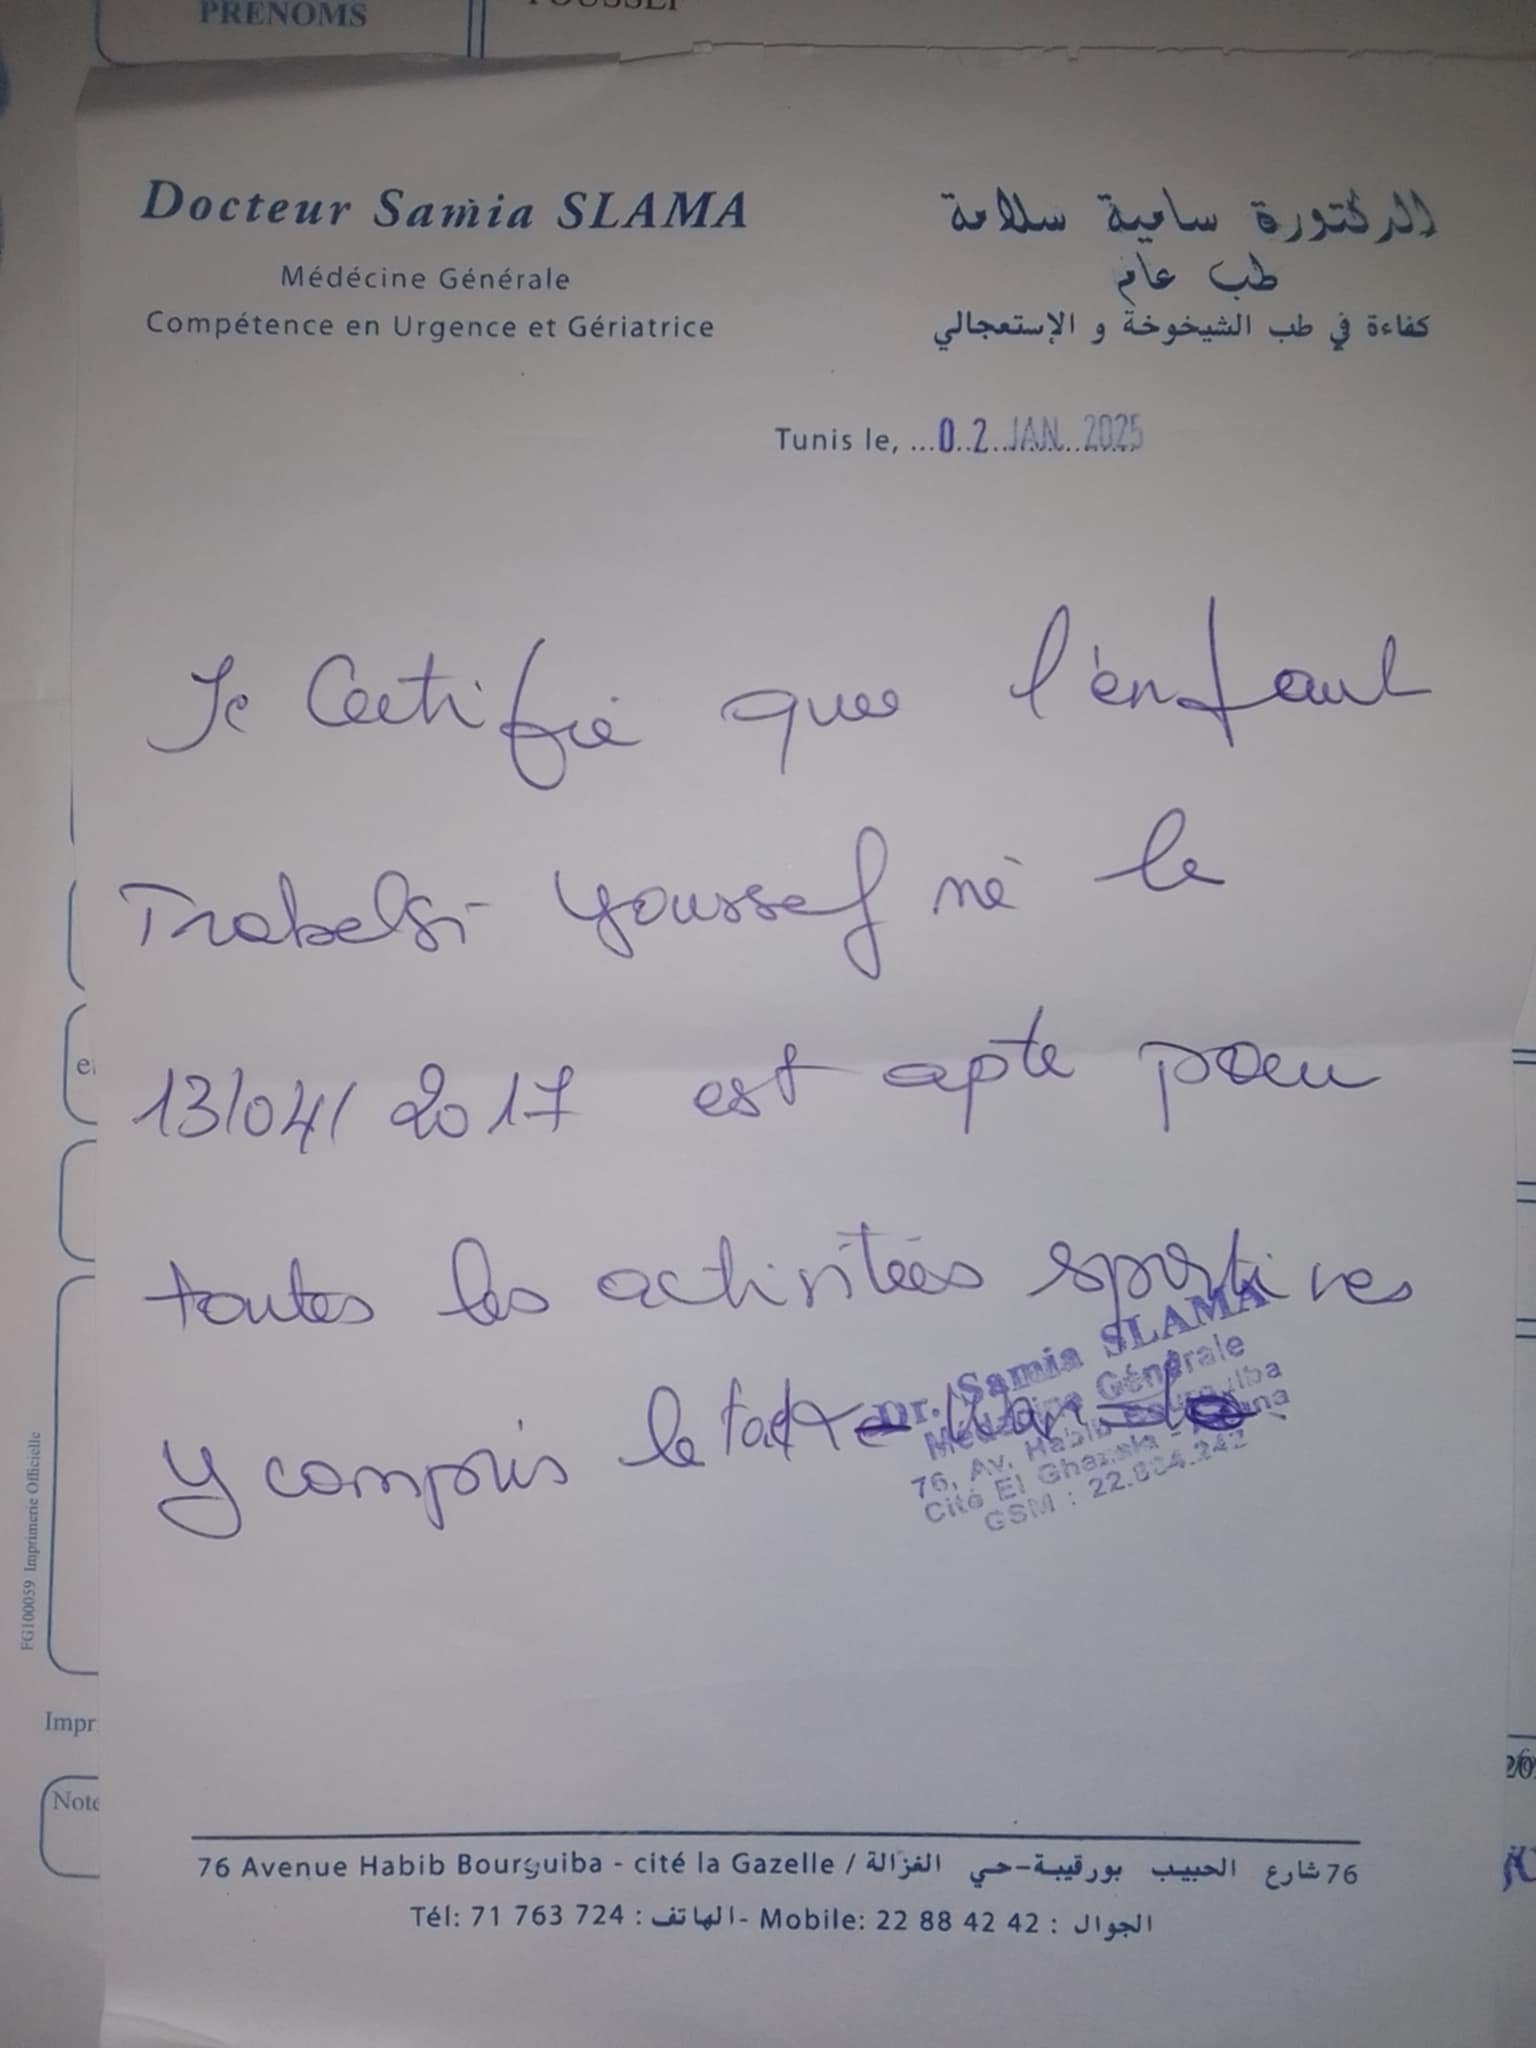 PRENOMS
YOUSSEF
Docteur Samia SLAMA
الدكتورة سامية سلامة
Médécine Générale
طب عام
Compétence en Urgence et Gériatrice
كفاءة في طب الشيخوخة و الإستعجالي
Tunis le, ...0.2..JAN..2025
Je Certifie que l'enfant
Trabelsi Youssef né le
13/04/2017 est apte pour
toutes les activitées sportives
y compris le
Dr. Samia SLAMA
Médecine Générale
76, Av. Habib Bourguiba
Cité El Ghazala - Ariana
GSM : 22.884.242
FG100059 Imprimerie Officielle
Impr
Note
76 Avenue Habib Bourguiba - cité la Gazelle / 76 شارع الحبيب بورقيبة-حي الغزالة
Tél: 71 763 724 : الهاتف- Mobile: 22 88 42 42 : الجوال